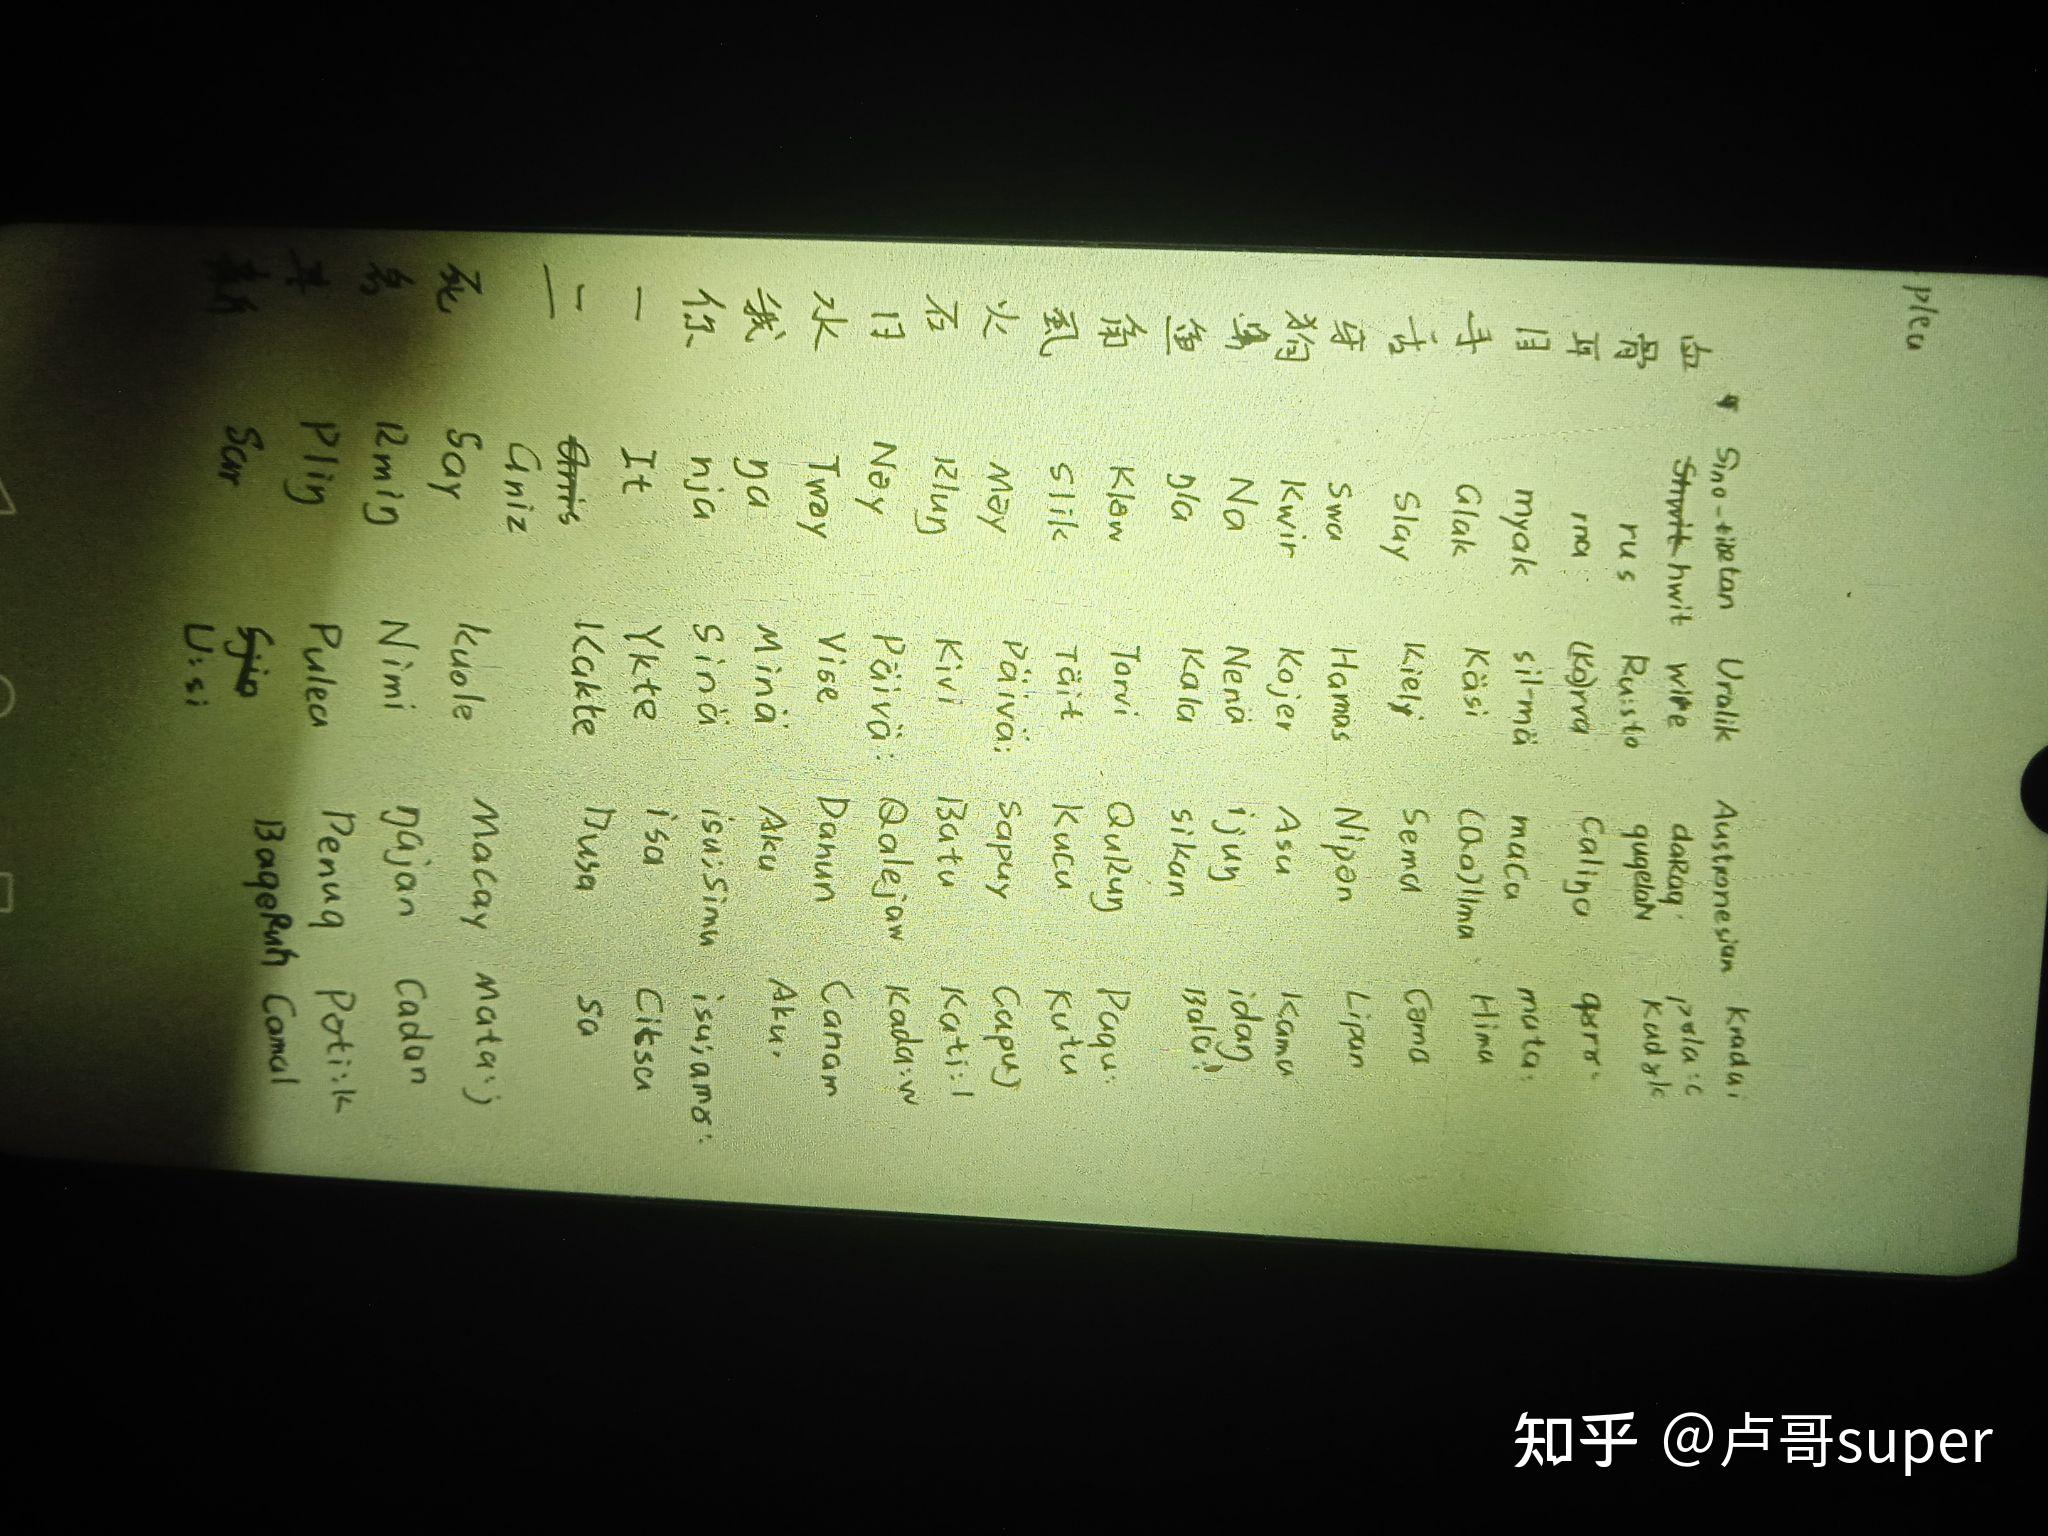 pleu
Sino-tibetan Uralik Austronesian Kradai
血 hwit wire daRaq pala:c
骨 rus Ru:sto quqelaN Kudɤk
耳 rna (Ko)rva Caliŋa qɤrɤ:
目 myak sil-mä maCa mata:
手 Glak Käsi (Qa)lima Hima
舌 Slay Kielj Sema Cama
牙 Swa Hamas Nipən Lipan
狗 Kwir Kojer Asu Kama
鼻 Na Nenä ijuŋ idaŋ
鱼 ŋla Kala sikan Bala:
角 Kləw Torvi QuRuŋ Paqu:
虱 Slik Täit Kucu Kutu
火 Məy Päivä: Sapuy Capuj
石 Rluŋ Kivi Batu Kati:l
日 Nəy Päivä: Qalejaw Kada:w
水 Twəy Vise Danun Canam
我 ŋa Minä Aku Aku.
你 nja Sinä isu;simu isu;amɤ:
一 It Ykte isa Citsa
二 Gniz Kakte Dusa Sa
死 Səy Kuole Macay Mata:j
名 Rmiŋ Nimi ŋajan Cadan
Pliŋ Pulea Penuq Poti:k
新 Sar U:si BaqeRuh Camal
知乎 @卢哥super